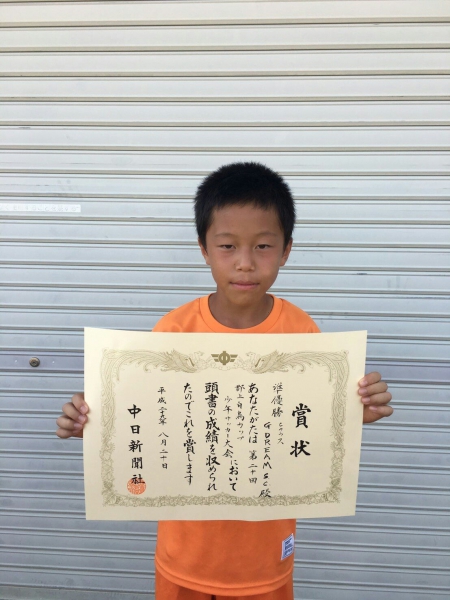 賞状
準優勝
G DREAM SC 殿
あなたがたは 第二十回
郡上白鳥カップ
少年サッカー大会において
頭書の成績を収められ
たのでこれを賞します
平成 八月二十日
中日新聞社